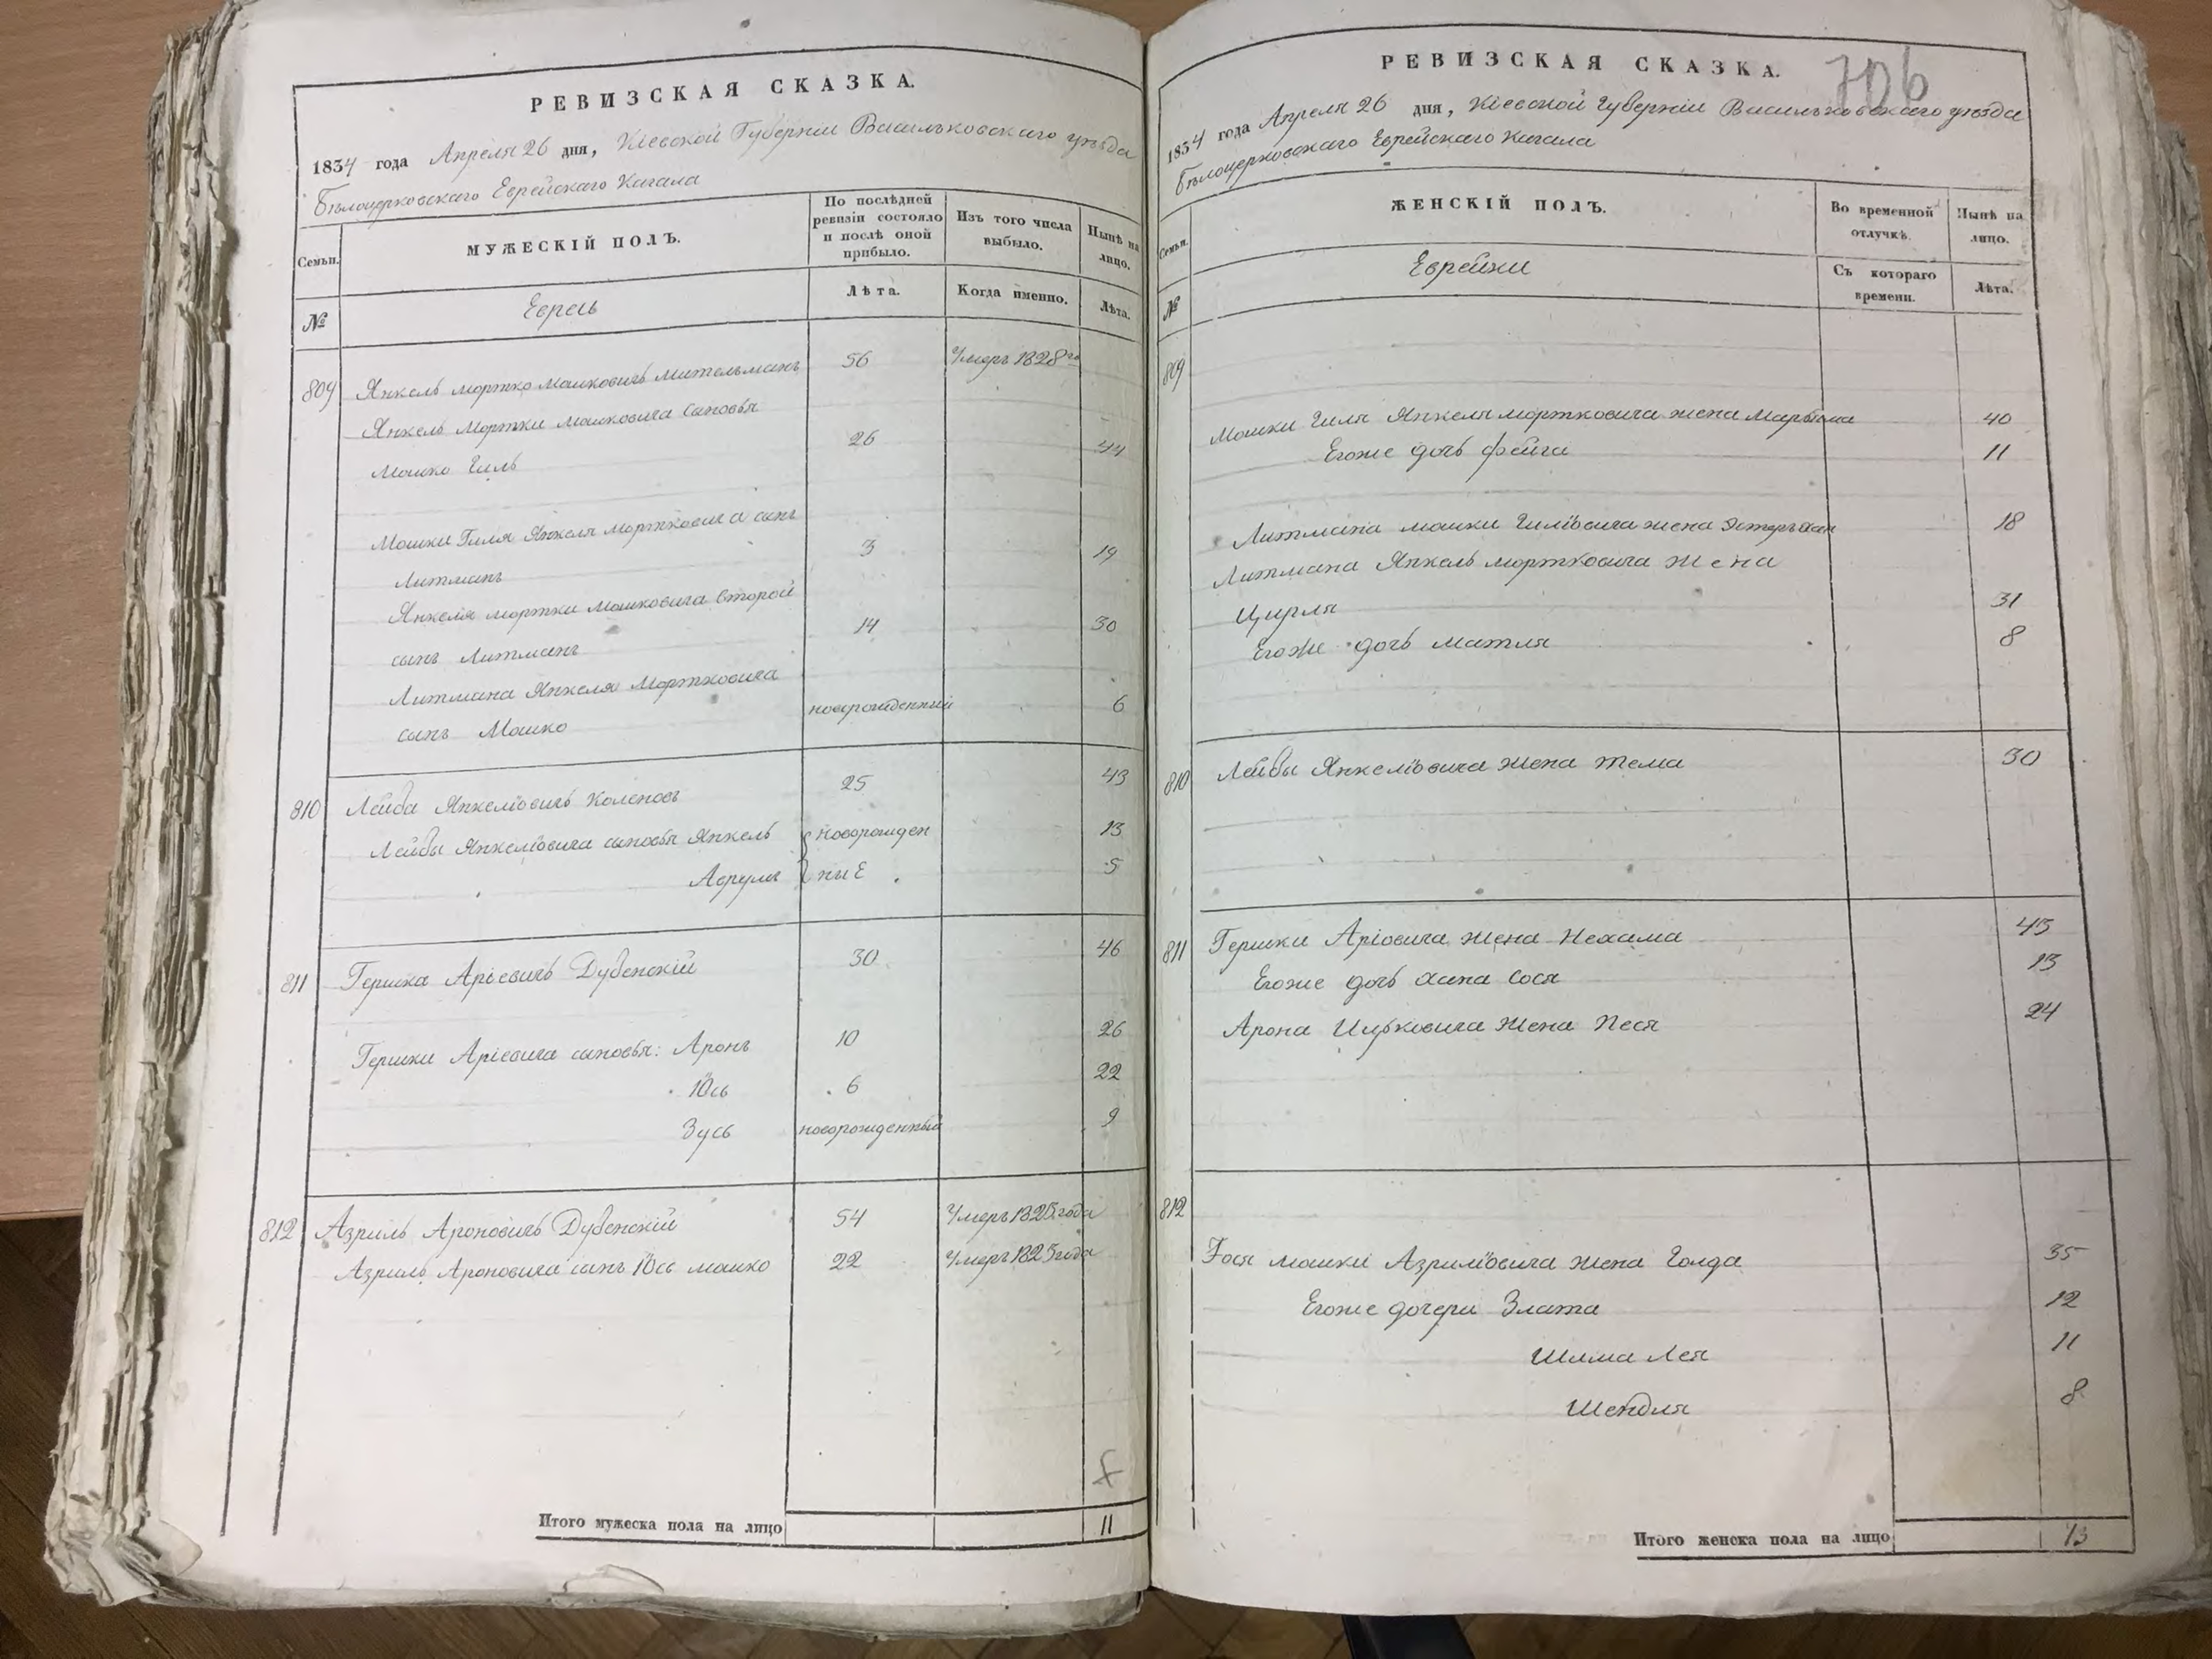 РЕВИЗСКАЯ СКАЗКА.
1834 года Апреля 26 дня, Кіевской Губерніи Васильковскаго уѣзда
Бѣлоцерковскаго Еврейскаго Кагала
Семьи.
МУЖЕСКІЙ ПОЛЪ.
По послѣдней ревизіи состояло и послѣ оной прибыло.
Изъ того числа выбыло.
Нынѣ на лицо.
№
Евреи
Лѣта.
Когда именно.
Лѣта.
809 Янкель Мортко Мошковичь Мительманъ 56 Умеръ 1828го
Янкель Мортки Мошковича сыновья
Мошко Гиль 26 44
Мошки Гиля Янкеля Мортковича сынъ
Литманъ 3 19
Янкеля Мортки Мошковича второй
сынъ Литманъ 14 30
Литмана Янкеля Мортковича
сынъ Мошко новорожденный 6
810 Лейба Янкеліовичь 25 43
Лейбы Янкеліовича сыновья Янкель новорожден 13
Аврумъ ные 5
811 Гершка Аріевичь Дубенскій 30 46
Гершки Аріевича сыновья: Аронъ 10 26
Юсь 6 22
Зусь новорожденный 9
812 Азриль Ароновичь Дубенскій 54 Умеръ 1825 года
Азриль Ароновича сынъ Юсь Мошко 22 Умеръ 1825 года
Итого мужеска пола на лицо 11
РЕВИЗСКАЯ СКАЗКА.
706
1834 года Апреля 26 дня, Кіевской Губерніи Васильковскаго уѣзда
Бѣлоцерковскаго Еврейскаго Кагала
Семьи.
ЖЕНСКІЙ ПОЛЪ.
Во временной отлучкѣ.
Нынѣ на лицо.
№
Еврейки
Съ котораго времени.
Лѣта.
809
Мошки Гиля Янкеля Мортковича жена 40
Егоже дочь Фейга 11
Литмана Мошки Гиліовича жена 18
Литмана Янкель Мортковича жена
Цирля 31
Егоже дочь Матля 8
810 Лейбы Янкеліовича жена Тема 30
811 Гершки Аріовича жена Нехама 43
Егоже дочь Хана Сося 13
Арона Ицьковича жена Песя 24
812
Мошки Азриліовича жена Голда 35
Егоже дочери Злата 12
Шима Лея 11
Шендля 8
Итого женска пола на лицо 13